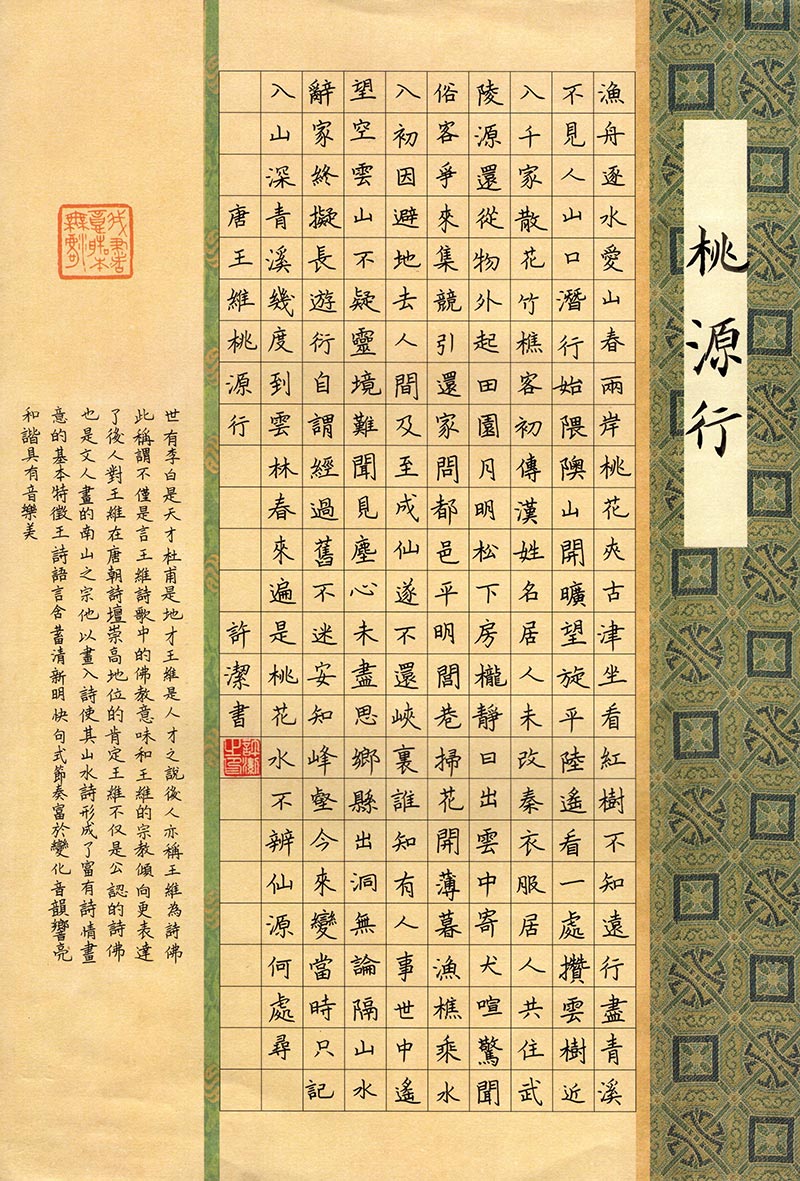 桃源行
漁舟逐水愛山春兩岸桃花夾古津坐看紅樹不知遠行盡青溪
不見人山口潛行始隈隩山開曠望旋平陸遙看一處攢雲樹近
入千家散花竹樵客初傳漢姓名居人未改秦衣服居人共住武
陵源還從物外起田園月明松下房櫳靜日出雲中寄犬喧驚聞
俗客爭來集競引還家問都邑平明閭巷掃花開薄暮漁樵乘水
入初因避地去人間及至成仙遂不還峽裏誰知有人事世中遙
望空雲山不疑靈境難聞見塵心未盡思鄉縣出洞無論隔山水
辭家終擬長遊衍自謂經過舊不迷安知峰壑今來變當時只記
入山深青溪幾度到雲林春來遍是桃花水不辨仙源何處尋
唐王維桃源行 許潔書
許潔之印
世有李白是天才杜甫是地才王維是人才之說後人亦稱王維為詩佛
此稱謂不僅是言王維詩歌中的佛教意味和王維的宗教傾向更表達
了後人對王維在唐朝詩壇崇高地位的肯定王維不仅是公認的詩佛
也是文人畫的南山之宗他以畫入詩使其山水詩形成了富有詩情畫
意的基本特徵王詩語言含蓄清新明快句式節奏富於變化音韻響亮
和諧具有音樂美